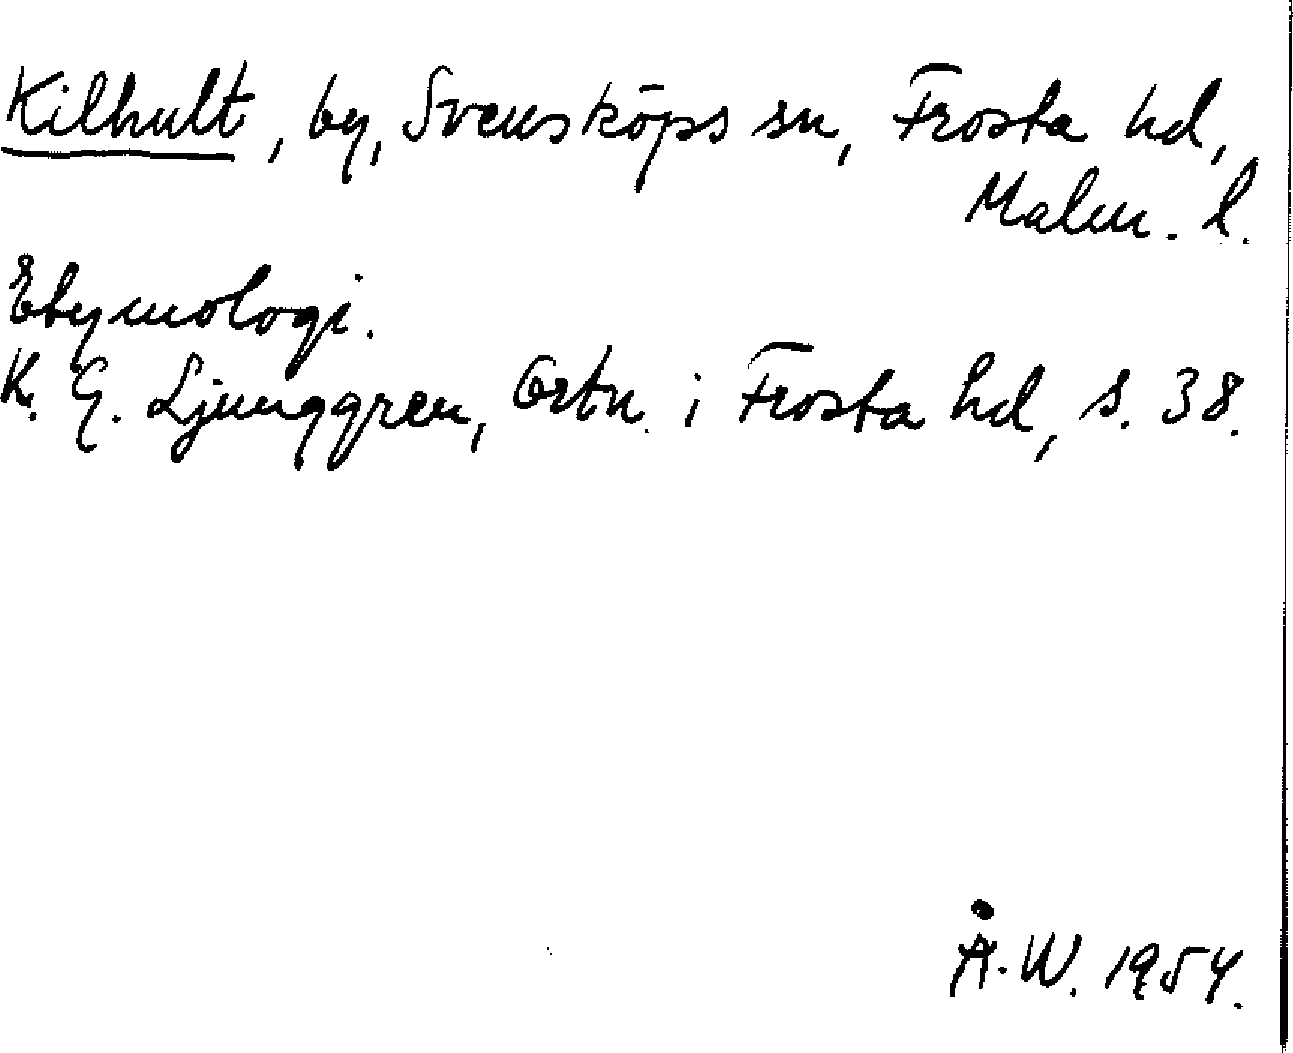 Kilhult, by, Svensköps sn, Frosta hd,
Malm. l.
Etymologi.
K. G. Ljunggren, Ortn. i Frosta hd, s. 38.
Å. W. 1954.